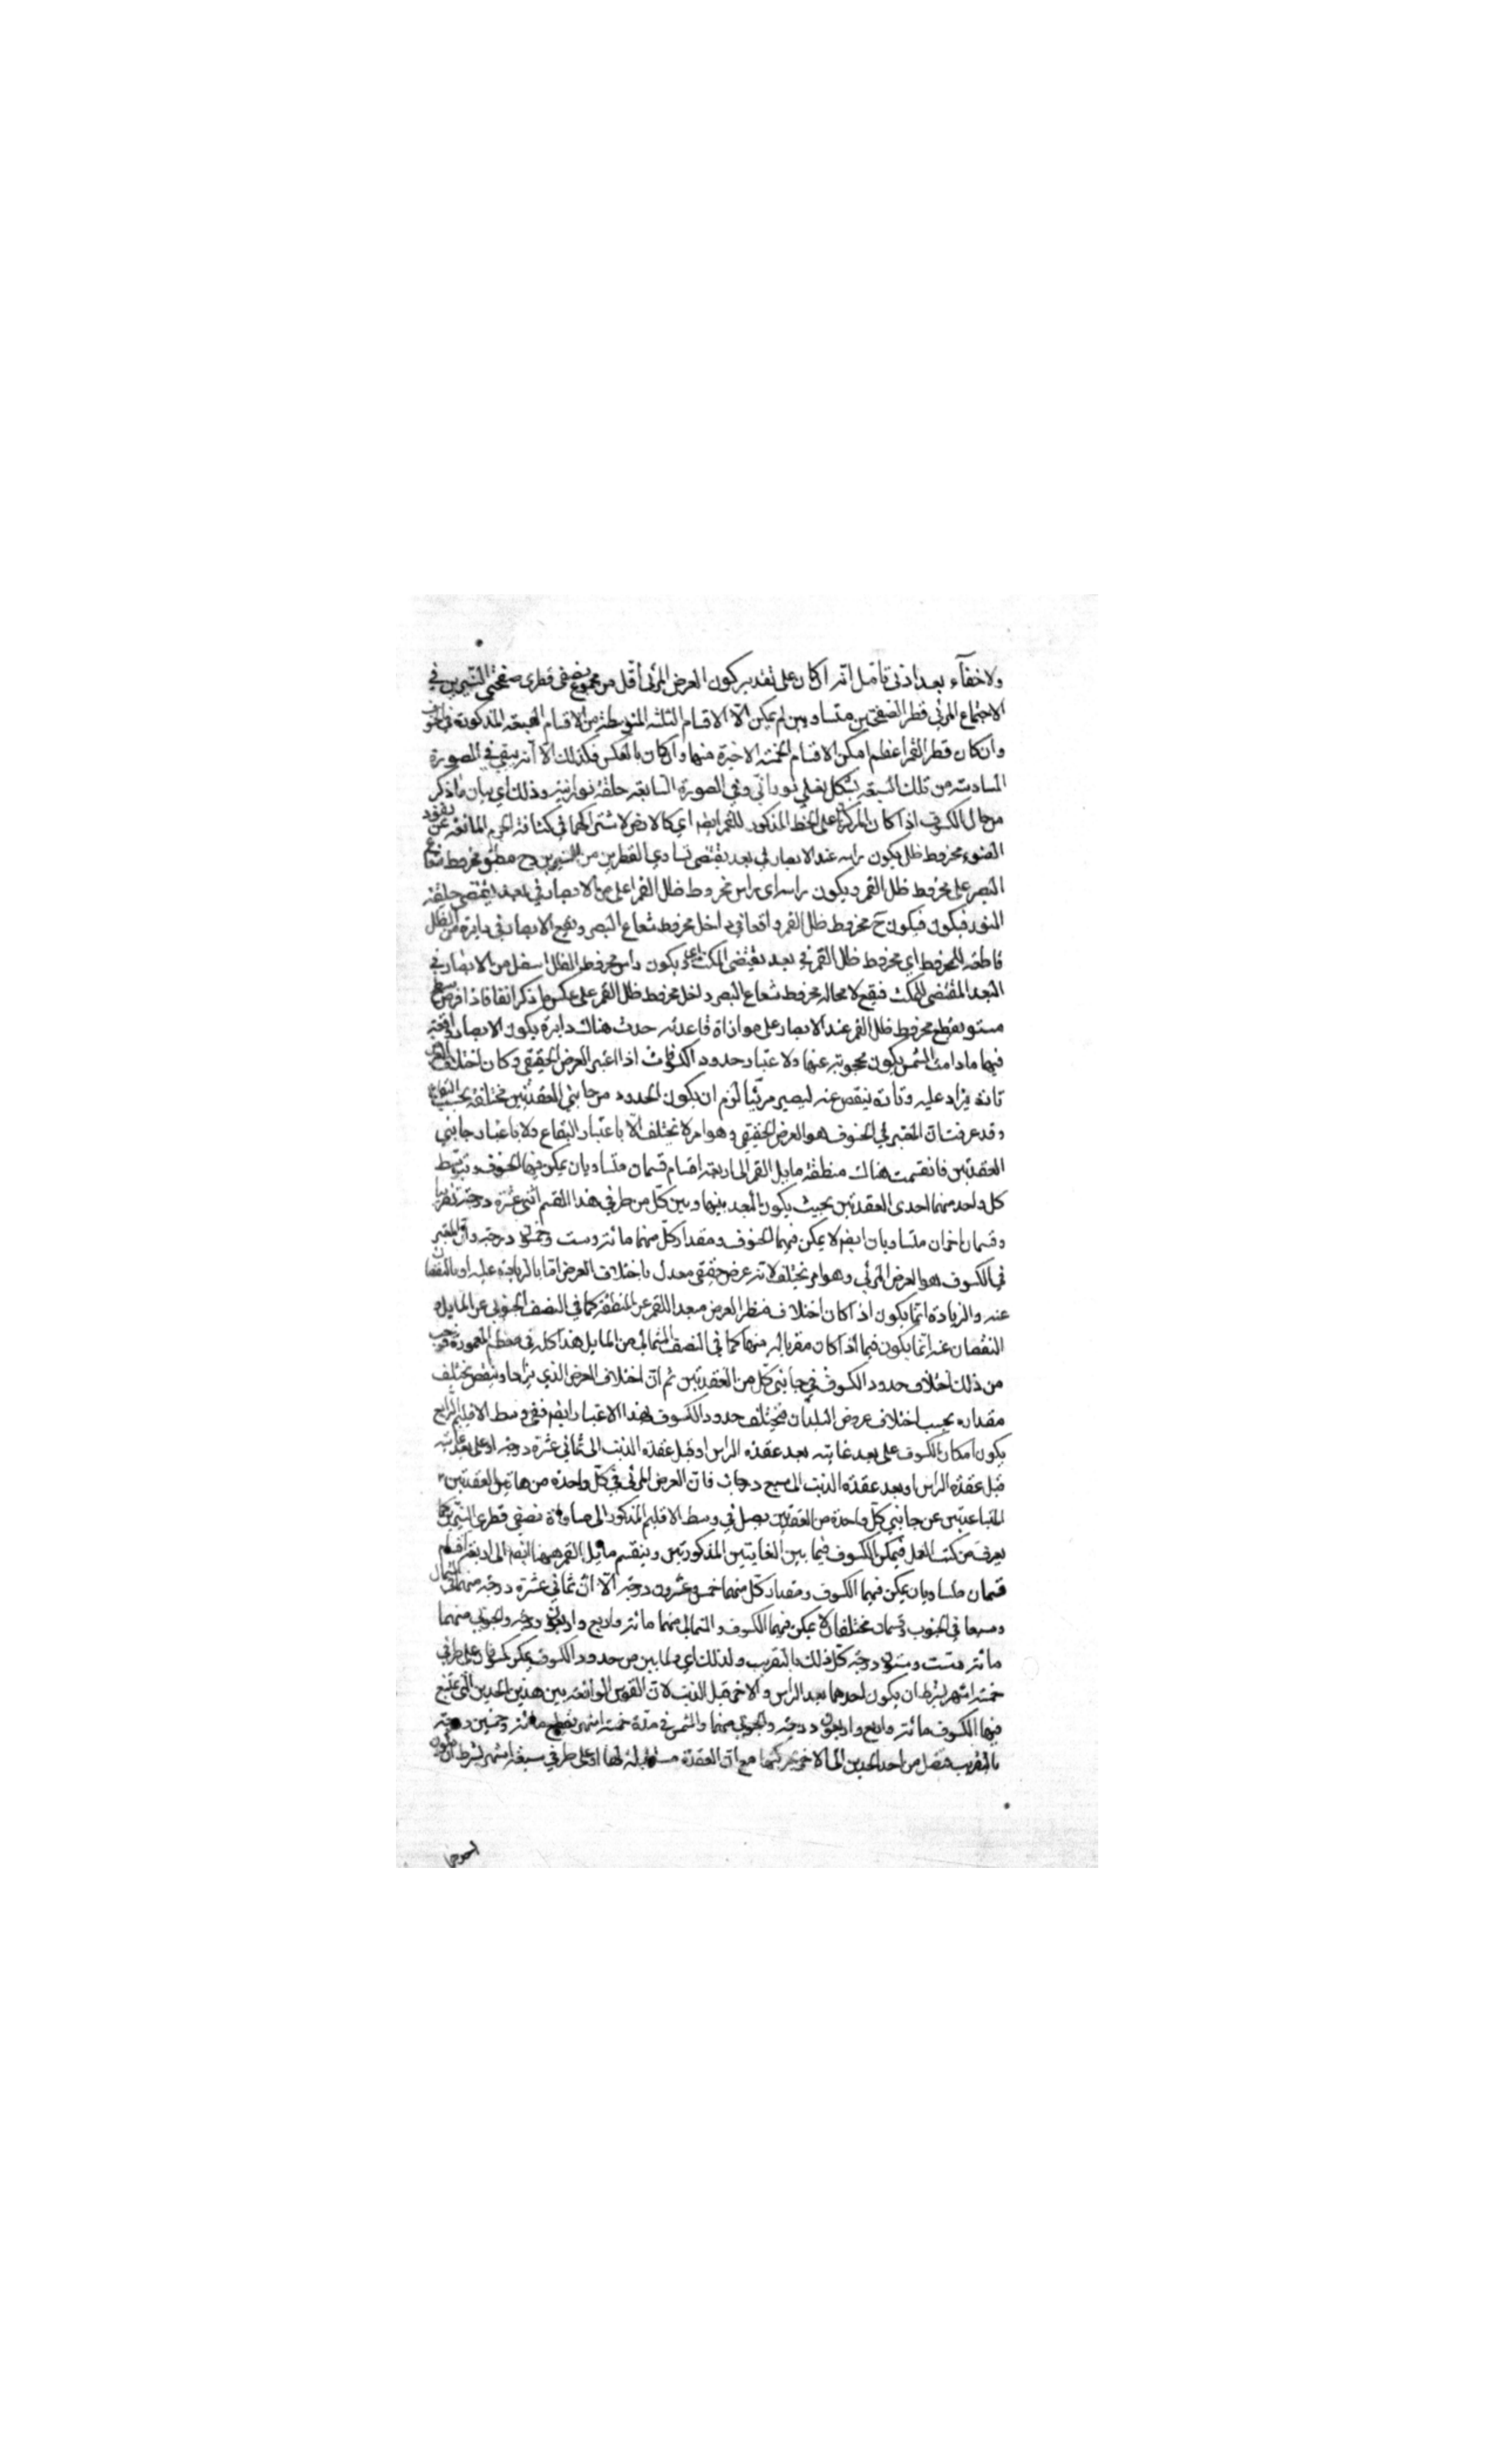 ولا خفآء بعد ادنى تامل انه ان كان على تقدير كون العرض المرئى أقل من مجموع نصفى قطرى صفحتى النيرين في
الاجتماع المرئى قطر الصفحتين متساويين لم يمكن الا الاقسام الثلثه المتوسطة من الاقسام السبعه المذكورة في الخسوف
وان كان قطر القمر اعظم امكن الاقسام الخمسه الاخيرة منها وان كان بالعكس فكذلك الا انه يبقى في الصورة
السادسة من تلك السبعه شكل نعلي نوراني وفي الصورة السابعه حلقه نورانيه وذلك اي بيان ما ذكر
من حال الكسوف اذا كان المركز على الخط المذكور للقمر ايضا اي كالارض لاشتراكهما في كثافة الجرم المانعه عن نفوذ
الضوء مخروط ظل يكون راسه عند الابصار في بعد يقتضى تساوي القطرين من النيرين وح ينطبق مخروط شعاع
البصر على مخروط ظل القمر ويكون راسه اى راس مخروط ظل القمر اعلى من الابصار في بعد يقتضى حلقة
النور فيكون فيكون ح مخروط ظل القمر واقعا في داخل مخروط شعاع البصر ويقع الابصار في دايرة من الظل
قاطعه للمخروط اي مخروط ظل القمر في بعد يقتضى المكث اعنى يكون راس مخروط الظل اسفل من الابصار في
البعد المقتضى للمكث فيقع لا محاله مخروط شعاع البصر داخل مخروط ظل القمر على عكس ما ذكر انفا فاذا فرض سطح
مستو يقطع مخروط ظل القمر عند الابصار على موازاة قاعدته حدث هناك دايرة يكون الابصار واقعة
فيها ما دامت الشمس يكون محجوبة عنها ولاعتبار حدود الكسوفات اذا اعتبر العرض الحقيقي وكان اختلاف العرض
تارة يزاد عليه وتارة ينقص عنه ليصير مرئيا لزم ان يكون الحدود من جانبي العقدتين مختلفة بحسب البقاع
وقد عرفت ان المعتبر في الخسوف هو العرض الحقيقي وهو امر لا يختلف الا باعتبار البقاع ولا باعتبار جانبي
العقدتين فانقسمت هناك منطقة مايل القمر الى اربعة اقسام قسمان متساويان يمكن فيهما الخسوف ويتوسط
كل واحد منهما احدى العقدتين بحيث يكون البعد بينها وبين كل من طرفي هذا القسم اثنى عشرة درجة تقريبا
وقسمان اخران متساويان ايضا لا يمكن فيهما الخسوف ومقدار كل منهما مائه وست وخمسون درجه وان المعتبر
في الكسوف هو العرض المرئي وهو امر يختلف لانه عرض حقيقي معدل باختلاف العرض اما بالزيادة عليه او بالنقصان
عنه والزيادة انما يكون اذا كان اختلاف منظر العرض مبعدا للقمر عن المنطقة كما في النصف الجنوبى عن المايل و
النقصان عنه انما يكون فيما اذا كان مقربا له منها كما في النصف الشمالي من المايل هذا كله في معظم المعمورة فوجب
من ذلك اختلاف حدود الكسوف في جانبي كل من العقدتين ثم ان اختلاف العرض الذي يزاد او ينقص يختلف
مقداره بحسب اختلاف عروض البلدان فيختلف حدود الكسوف بهذا الاعتبار ايضا ففي وسط الاقليم الرابع
يكون امكان الكسوف على بعد غايته بعد عقدة الراس او قبل عقدة الذنب الى ثماني عشرة درجه او على بعد غايته
قبل عقدة الراس او بعد عقدة الذنب الى سبع درجات فان العرض المرئى في كل واحدة من هاتين العقدتين
المتباعدتين عن جانبي كل واحدة من العقدتين يصل في وسط الاقليم المذكور الى مساواة نصفى قطرى النيرين كما
يعرف من كتب العمل فيمكن الكسوف فيما بين الغايتين المذكورتين وينقسم مايل القمر ههنا ايضا الى اربعة اقسام
قسمان متساويان يمكن فيهما الكسوف ومقدار كل منهما خمس وعشرون درجه الا ان ثماني عشرة درجه منها في الشمال
وسبعا في الجنوب وقسمان مختلفان لا يمكن فيهما الكسوف والشمالى منهما مائه واربع واربعون درجه والجنوبي منهما
مائه وست وستون درجه كل ذلك بالتقريب ولذلك اي ولما بين من حدود الكسوف يمكن كسوفان على طرفي
خمسة اشهر بشرط ان يكون احدهما بعد الراس والاخر قبل الذنب لان القوس الواقعه بين هذين الحدين التي يمتنع
فيها الكسوف مائه واربع واربعون درجه والشمس في مدة خمسة اشهر يقطع مائه وخمسين درجه
بالتقريب فتصل من احد الحدين الى الاخر بحركتها مع ان العقدة مستقبلة لها او على طرفي سبعة اشهر بشرط ان يكون